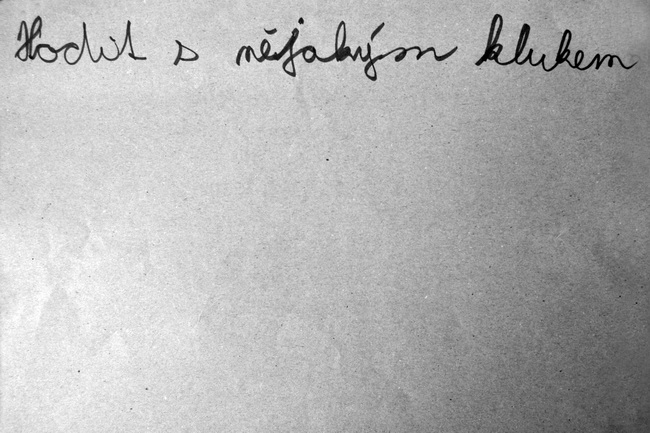 Hodit s nějakým klukem